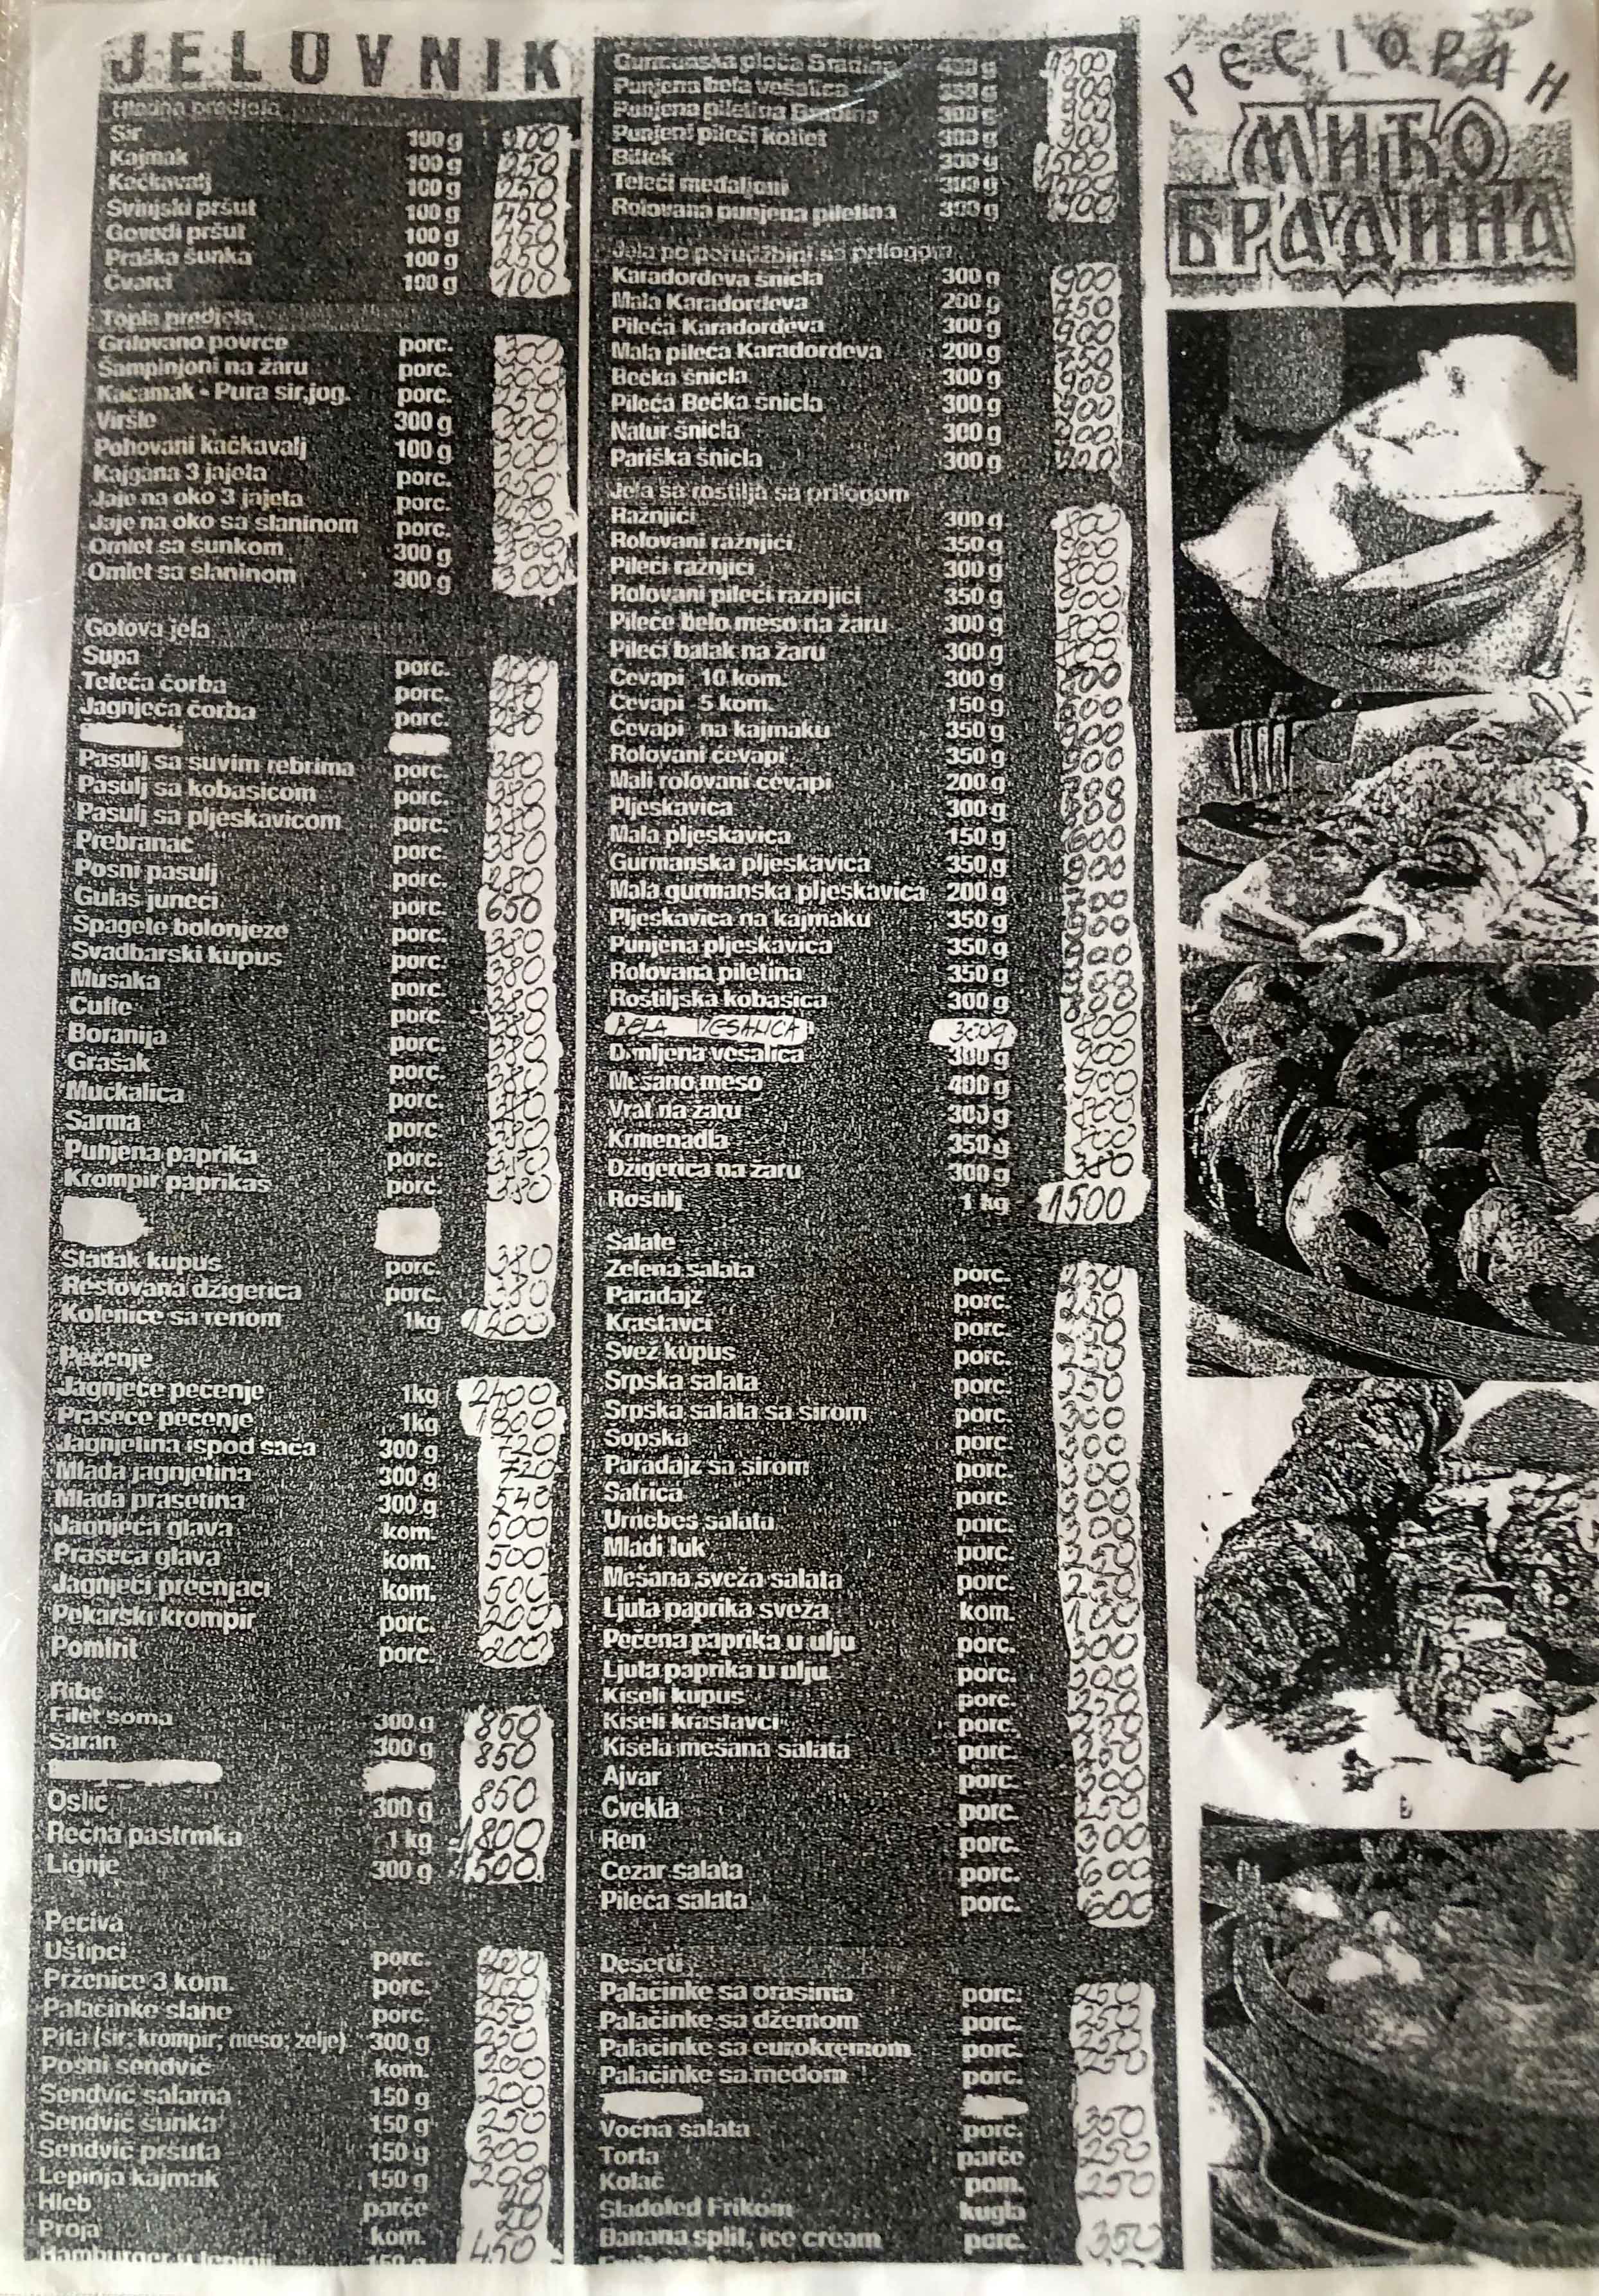 JELOVNIK
Hladna predjela
Sir 100 g
Kajmak 100 g 250
Kačkavalj 100 g 250
Svinjski pršut 100 g 450
Goveđi pršut 100 g 450
Praška šunka 100 g 250
Čvarci 100 g 100
Topla predjela
Grilovano povrće porc. 300
Šampinjoni na žaru porc. 300
Kačamak - Pura sir,jog. porc. 350
Viršle 300 g 300
Pohovani kačkavalj 100 g 300
Kajgana 3 jajeta porc. 250
Jaje na oko 3 jajeta porc. 250
Jaje na oko sa slaninom porc. 300
Omlet sa šunkom 300 g 300
Omlet sa slaninom 300 g 300
Gotova jela
Supa porc.
Teleća čorba porc.
Jagnjeća čorba porc.
Pasulj sa suvim rebrima porc. 380
Pasulj sa kobasicom porc. 380
Pasulj sa pljeskavicom porc. 380
Prebranac porc. 380
Posni pasulj porc. 380
Gulaš juneći porc. 650
Špagete bolonjeze porc. 380
Svadbarski kupus porc. 380
Musaka porc. 380
Ćufte porc. 380
Boranija porc. 380
Grašak porc. 380
Mućkalica porc. 380
Sarma porc. 380
Punjena paprika porc. 380
Krompir paprikaš porc. 380
Sladak kupus porc. 380
Restovana džigerica porc. 380
Kolenice sa renom 1kg 1200
Pečenje
Jagnjeće pečenje 1kg 2400
Praseće pečenje 1kg 1800
Jagnjetina ispod sača 300 g 720
Mlada jagnjetina 300 g 720
Mlada prasetina 300 g 540
Jagnjeća glava kom. 500
Praseća glava kom. 500
Jagnjeći precnjaci kom. 500
Pekarski krompir porc. 200
Pomfrit porc. 200
Ribe
Filet soma 300 g 850
Šaran 300 g 850
Oslić 300 g 850
Rečna pastrmka 1 kg 1800
Lignje 300 g 1500
Peciva
Uštipci porc.
Prženice 3 kom. porc.
Palačinke slane porc. 250
Pita (sir; krompir; meso; zelje) 300 g
Posni sendvič kom. 200
Sendvič salama 150 g 200
Sendvič šunka 150 g 250
Sendvič pršuta 150 g 300
Lepinja kajmak 150 g 200
Hleb parče
Proja kom.
Hamburger u lepinji 150 g 450
Gurmanska ploča Bradina 400 g 1300
Punjena bela vešalica 900
Punjena piletina Bradina 300 g 900
Punjeni pileći kotlet 300 g 900
Biftek 300 g 1500
Teleći medaljoni 300 g
Rolovana punjena piletina 300 g 900
Jela po porudžbini sa prilogom
Karađorđeva šnicla 300 g 900
Mala Karađorđeva 200 g 750
Pileća Karađorđeva 300 g 900
Mala pileća Karađorđeva 200 g 750
Bečka šnicla 300 g 900
Pileća Bečka šnicla 300 g 900
Natur šnicla 300 g 900
Pariška šnicla 300 g 900
Jela sa roštilja sa prilogom
Ražnjići 300 g 800
Rolovani ražnjići 350 g 900
Pileći ražnjići 300 g 800
Rolovani pileći ražnjići 350 g 900
Pileće belo meso na žaru 300 g 800
Pileći batak na žaru 300 g
Ćevapi 10 kom. 300 g
Ćevapi 5 kom. 150 g
Ćevapi na kajmaku 350 g 900
Rolovani ćevapi 350 g 900
Mali rolovani ćevapi 200 g
Pljeskavica 300 g 800
Mala pljeskavica 150 g 600
Gurmanska pljeskavica 350 g 900
Mala gurmanska pljeskavica 200 g
Pljeskavica na kajmaku 350 g
Punjena pljeskavica 350 g
Rolovana piletina 350 g
Roštiljska kobasica 300 g 800
BELA VEŠALICA 300g 800
Dimljena vešalica 300 g 800
Mešano meso 400 g 900
Vrat na žaru 300 g 800
Krmenadla 350 g 800
Džigerica na žaru 300 g 380
Roštilj 1 kg 1500
Salate
Zelena salata porc. 250
Paradajz porc. 250
Krastavci porc. 250
Svež kupus porc. 250
Srpska salata porc. 250
Srpska salata sa sirom porc. 300
Šopska porc. 300
Paradajz sa sirom porc. 300
Satrica porc. 300
Urnebes salata porc. 300
Mladi luk porc.
Mešana sveža salata porc. 250
Ljuta paprika sveža kom. 100
Pečena paprika u ulju porc. 300
Ljuta paprika u ulju porc. 300
Kiseli kupus porc. 250
Kiseli krastavci porc. 250
Kisela mešana salata porc. 250
Ajvar porc. 300
Cvekla porc. 250
Ren porc. 300
Cezar salata porc. 600
Pileća salata porc. 600
Deserti
Palačinke sa orasima porc. 250
Palačinke sa džemom porc. 250
Palačinke sa eurokremom porc. 250
Palačinke sa medom porc. 250
Voćna salata porc. 350
Torta parče 250
Kolač pom. 250
Sladoled Frikom kugla
Banana split, ice cream porc. 350
РЕСТОРАН
МИЋО
БРАДИНА